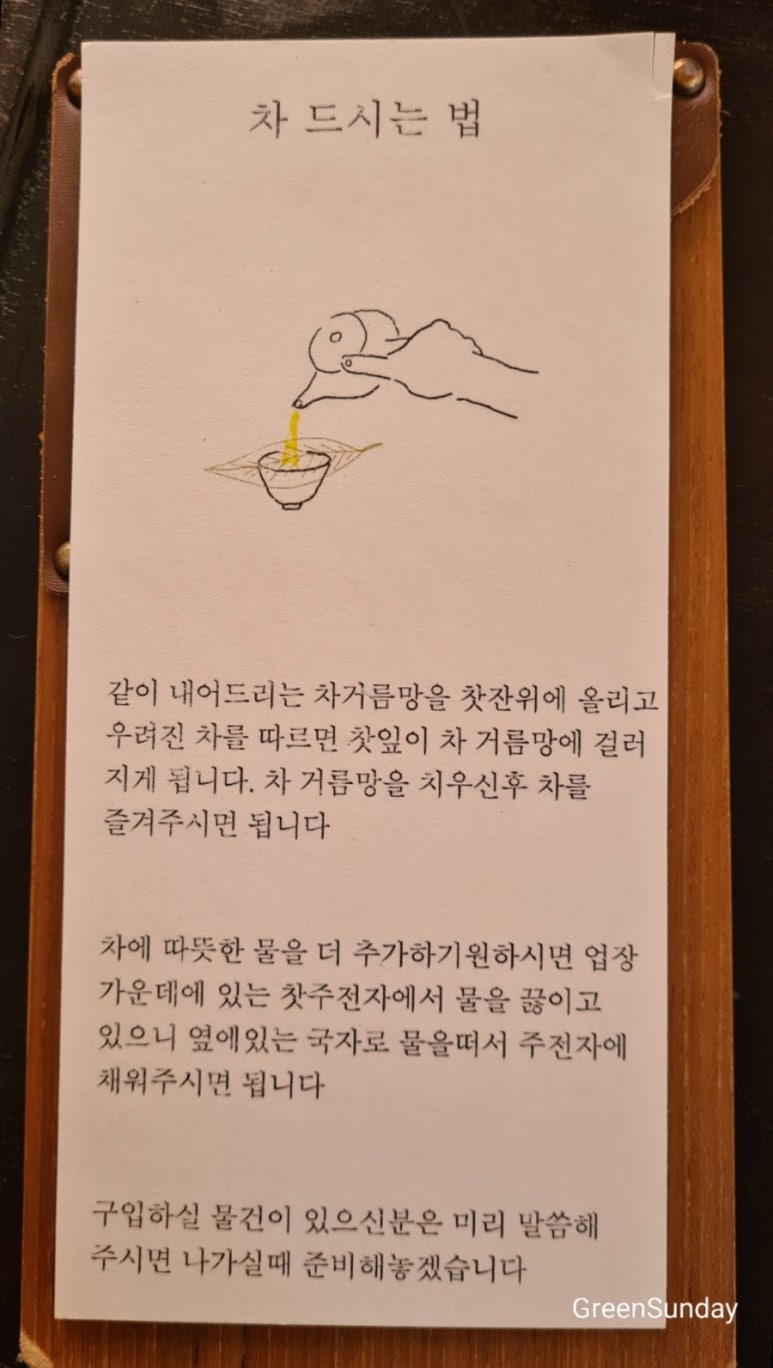 차 드시는 법
같이 내어드리는 차거름망을 찻잔위에 올리고
우려진 차를 따르면 찻잎이 차 거름망에 걸러
지게 됩니다. 차 거름망을 치우신후 차를
즐겨주시면 됩니다
차에 따뜻한 물을 더 추가하기원하시면 업장
가운데에 있는 찻주전자에서 물을 끓이고
있으니 옆에있는 국자로 물을떠서 주전자에
채워주시면 됩니다
구입하실 물건이 있으신분은 미리 말씀해
주시면 나가실때 준비해놓겠습니다
GreenSunday